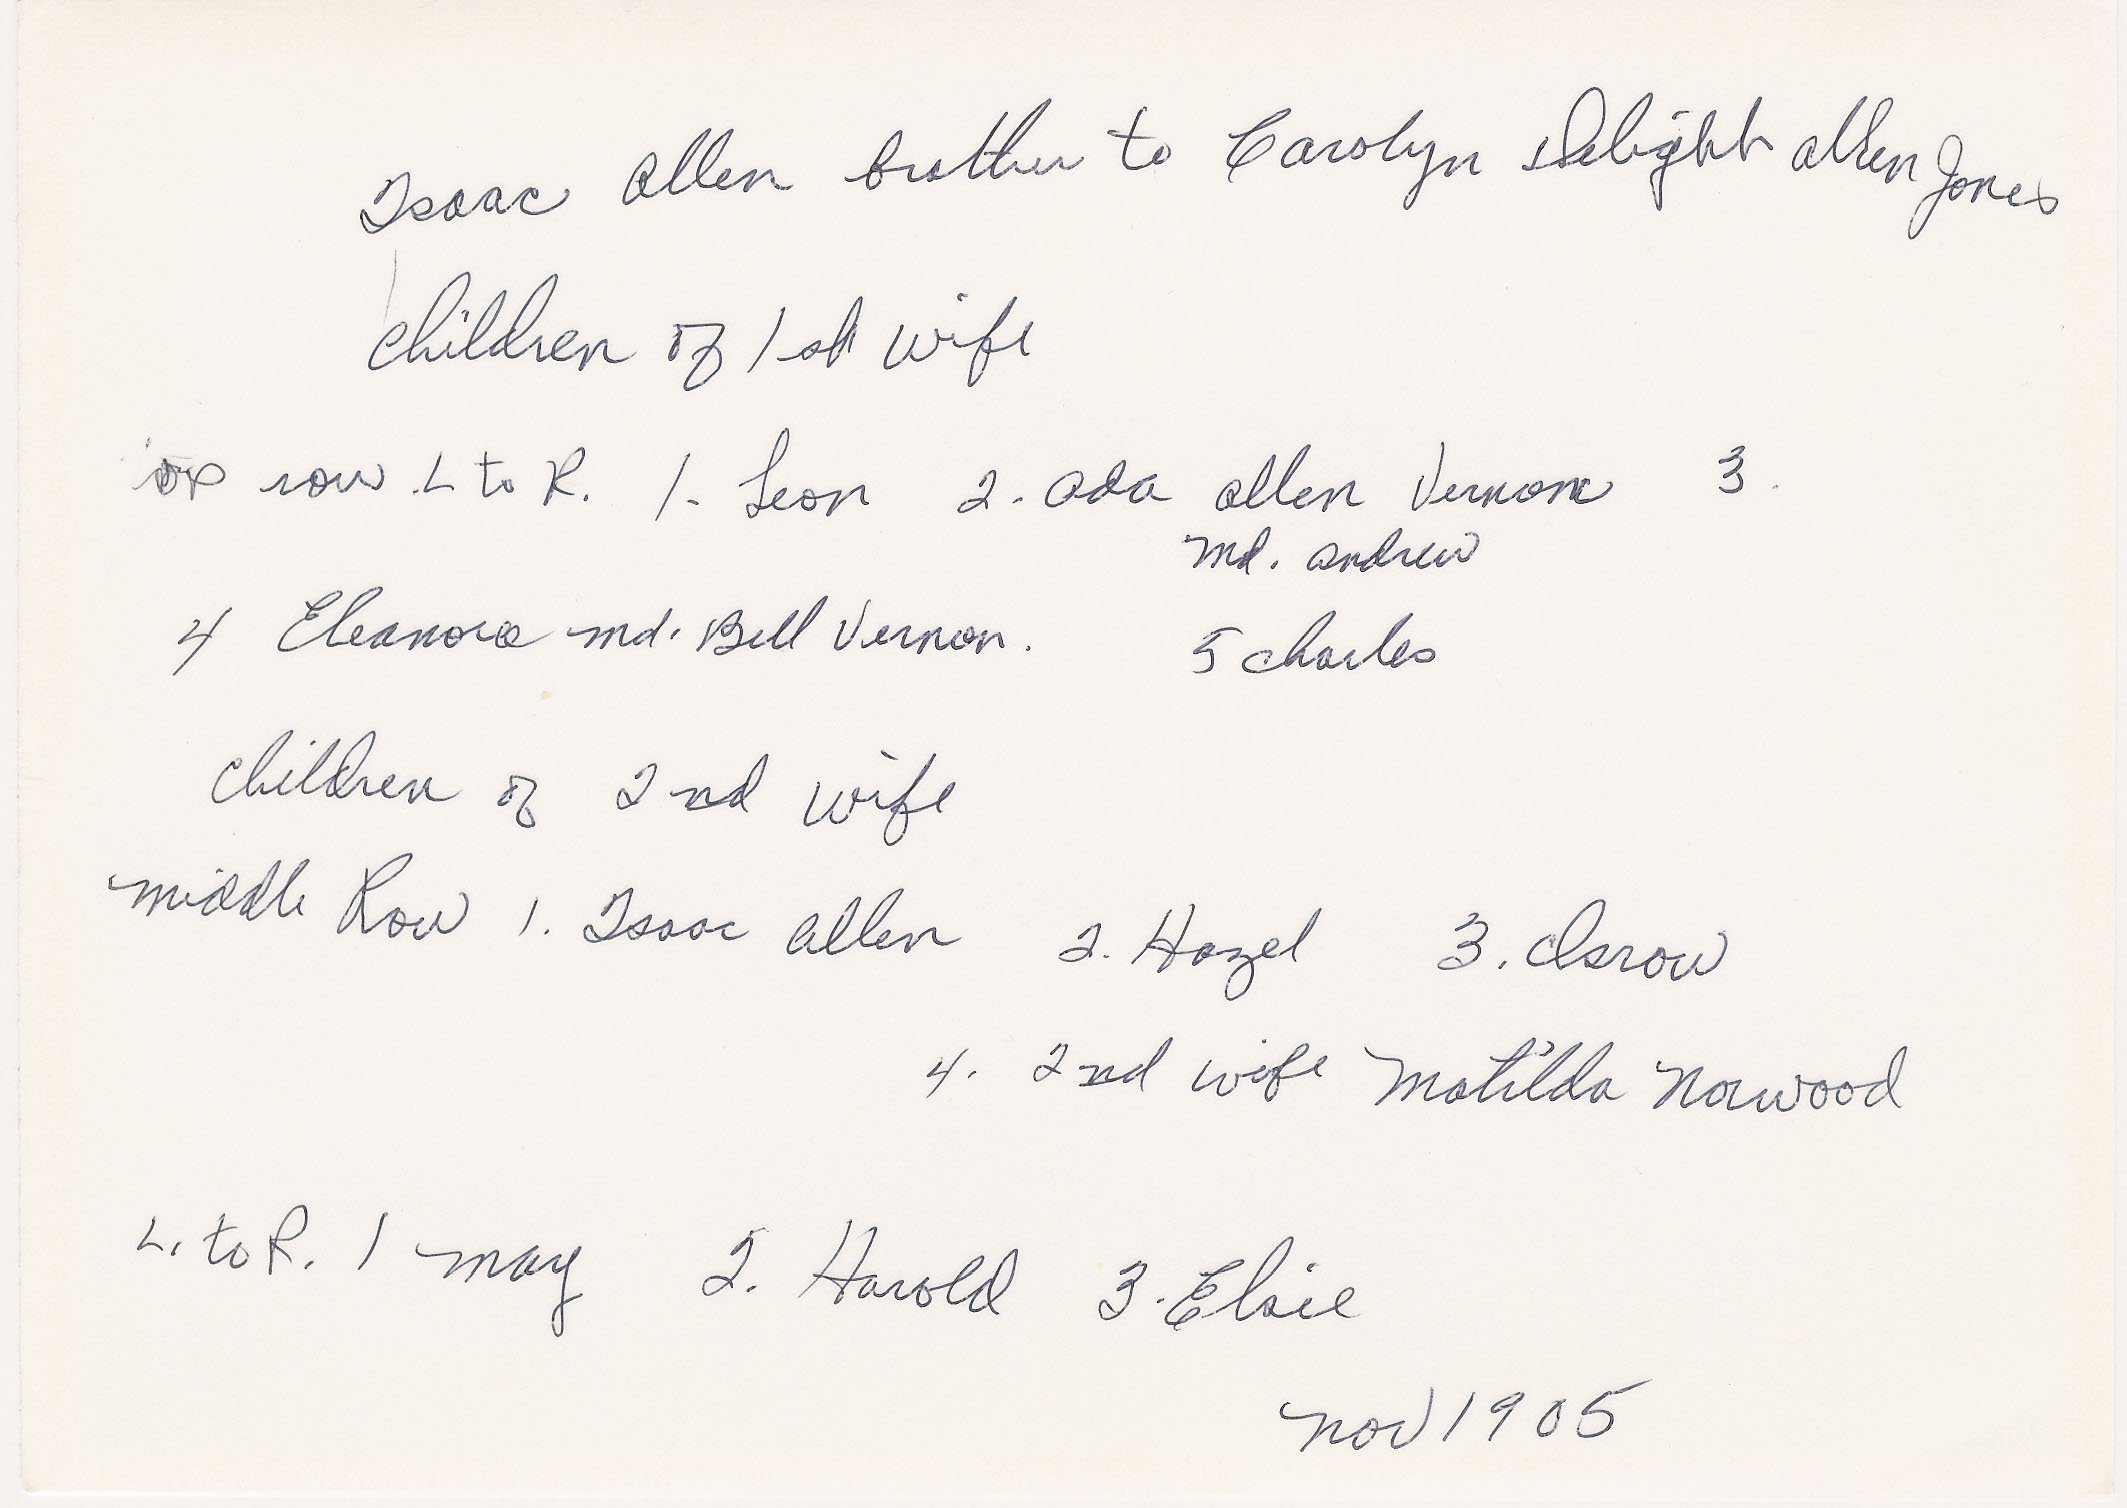 Isaac Allen brother to Carolyn Delight Allen Jones
Children of 1st wife
top row L to R. 1. Leon 2. Ada Allen Vernon 3.
md. Andrew
4 Eleanora md. Bill Vernon. 5 Charles
Children of 2nd wife
Middle Row 1. Isaac Allen 2. Hazel 3.
4. 2nd wife Matilda Norwood
L. to R. 1 May 2. Harold 3. Elsie
Nov 1905